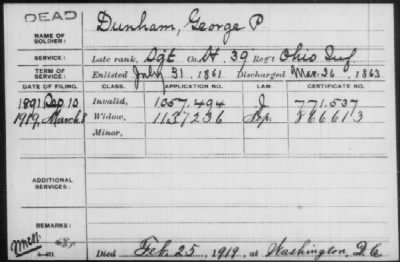 DEAD
NAME OF SOLDIER: Dunham, George P
SERVICE: Late rank, Sgt Co. H, 39 Reg't Ohio Inf
TERM OF SERVICE: Enlisted July 31, 1861 Discharged Mar. 26, 1863
DATE OF FILING. CLASS. APPLICATION NO. LAW. CERTIFICATE NO.
1891 Sep 10 Invalid, 1057.494 J 771.537
1919, March 8 Widow, 1137236 886613
Minor,
ADDITIONAL SERVICES:
REMARKS:
Died Feb. 25, 1919, at Washington, D.C.